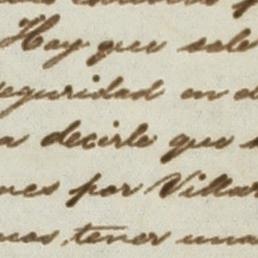 Hay que sale
seguridad en e
a decirle que
nes por Villa
mos, tener una